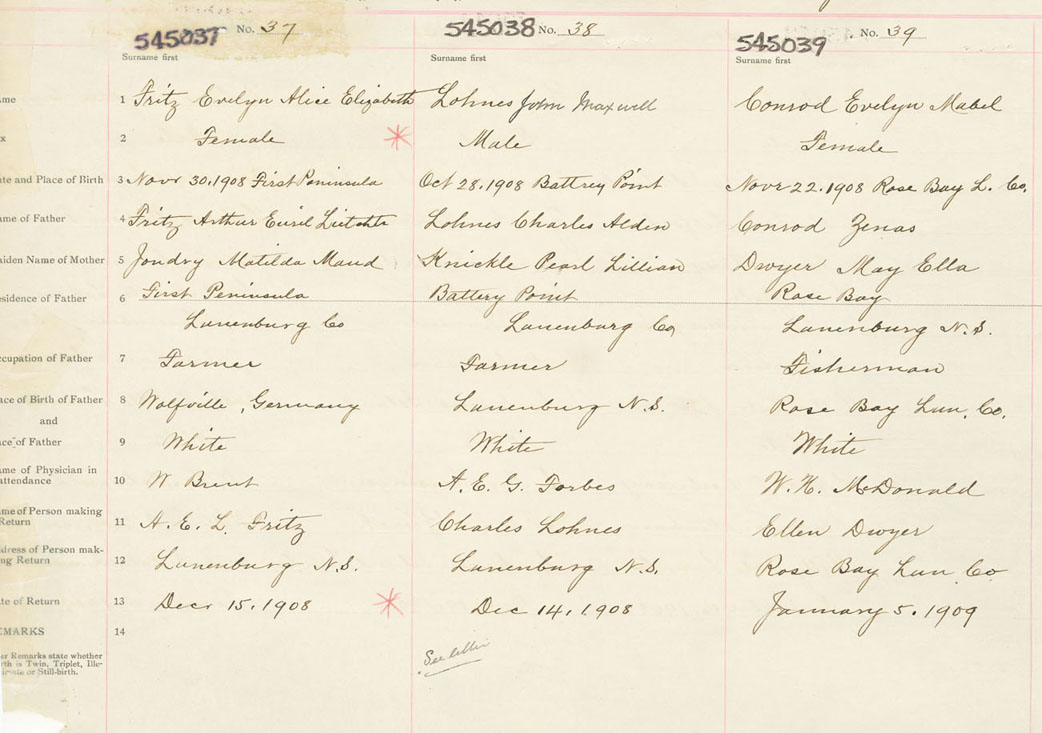 545037 No. 37 545038 No. 38 545039 No. 39
Surname first Surname first Surname first
ame 1 Fritz Evelyn Alice Elizabeth Lohnes John Maxwell Conrod Evelyn Mabel
x 2 Female Male Female
ate and Place of Birth 3 Novr 30.1908 First Peninsula Oct 28.1908 Battrey Point Novr 22.1908 Rose Bay L. Co.
ame of Father 4 Fritz Arthur Lohnes Charles Alden Conrod Zenas
aiden Name of Mother 5 Joudry Matilda Maud Knickle Pearl Lillian Dwyer May Ella
esidence of Father 6 First Peninsula Battery Point Rose Bay
Lunenburg Co Lunenburg Co Lunenburg N.S.
ccupation of Father 7 Farmer Farmer Fisherman
ace of Birth of Father 8 Wolfville, Germany Lunenburg N.S. Rose Bay Lun. Co.
and
ace of Father 9 White White White
ame of Physician in
attendance 10 W Brent A. E. G. Forbes W. H. McDonald
ame of Person making
Return 11 A. E. L. Fritz Charles Lohnes Ellen Dwyer
ddress of Person mak-
ng Return 12 Lunenburg N.S. Lunenburg N.S. Rose Bay Lun. Co
ate of Return 13 Decr 15.1908 Dec 14,1908 January 5.1909
EMARKS 14
er Remarks state whether
rth is Twin, Triplet, Ille-
imate or Still-birth.
See letter